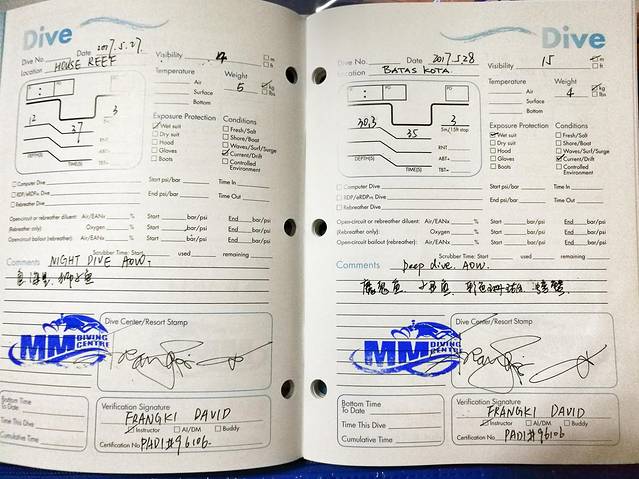 Dive
Dive No. Date 2017.5.27. Visibility m ft
Location HOUSE REEF
Temperature Weight
Air 5 kg
Surface lbs
Bottom
12 27 3
RNT
DEPTH(S) ABT+
TIME(S) TBT=
Exposure Protection Conditions
Wet suit Fresh/Salt
Dry suit Shore/Boat
Hood Waves/Surf/Surge
Gloves Current/Drift
Boots Controlled Environment
Computer Dive Start psi/bar Time In
RDP/eRDPML Dive End psi/bar Time Out
Rebreather Dive
Open-circuit or rebreather diluent: Air/EANx % Start bar/psi End bar/psi
(Rebreather only): Oxygen % Start bar/psi End bar/psi
Open circuit bailout (rebreather): Air/EANx % Start bar/psi End bar/psi
Scrubber Time: Start used remaining
Comments NIGHT DIVE AOW.
Dive Center/Resort Stamp
MM DIVING CENTRE
Bottom Time To Date
Time This Dive
Cumulative Time
Verification Signature
FRANGKI DAVID
Instructor AI/DM Buddy
Certification No. PADI #96106.
Dive
Dive No. Date 2017.5.28 Visibility 15 m ft
Location BATAS KOTA.
Temperature Weight
Air 4 kg
Surface lbs
Bottom
30,3 35 3
5m/15ft stop
RNT
DEPTH(S) ABT+
TIME(S) TBT=
Exposure Protection Conditions
Wet suit Fresh/Salt
Dry suit Shore/Boat
Hood Waves/Surf/Surge
Gloves Current/Drift
Boots Controlled Environment
Computer Dive Start psi/bar Time In
RDP/eRDPML Dive End psi/bar Time Out
Rebreather Dive
Open-circuit or rebreather diluent: Air/EANx % Start bar/psi End bar/psi
(Rebreather only): Oxygen % Start bar/psi End bar/psi
Open circuit bailout (rebreather): Air/EANx % Start bar/psi End bar/psi
Scrubber Time: Start used remaining
Comments Deep dive. AOW.
魔鬼鱼.
Dive Center/Resort Stamp
MM DIVING CENTRE
Bottom Time To Date
Time This Dive
Cumulative Time
Verification Signature
FRANGKI DAVID
Instructor AI/DM Buddy
Certification No. PADI #96106